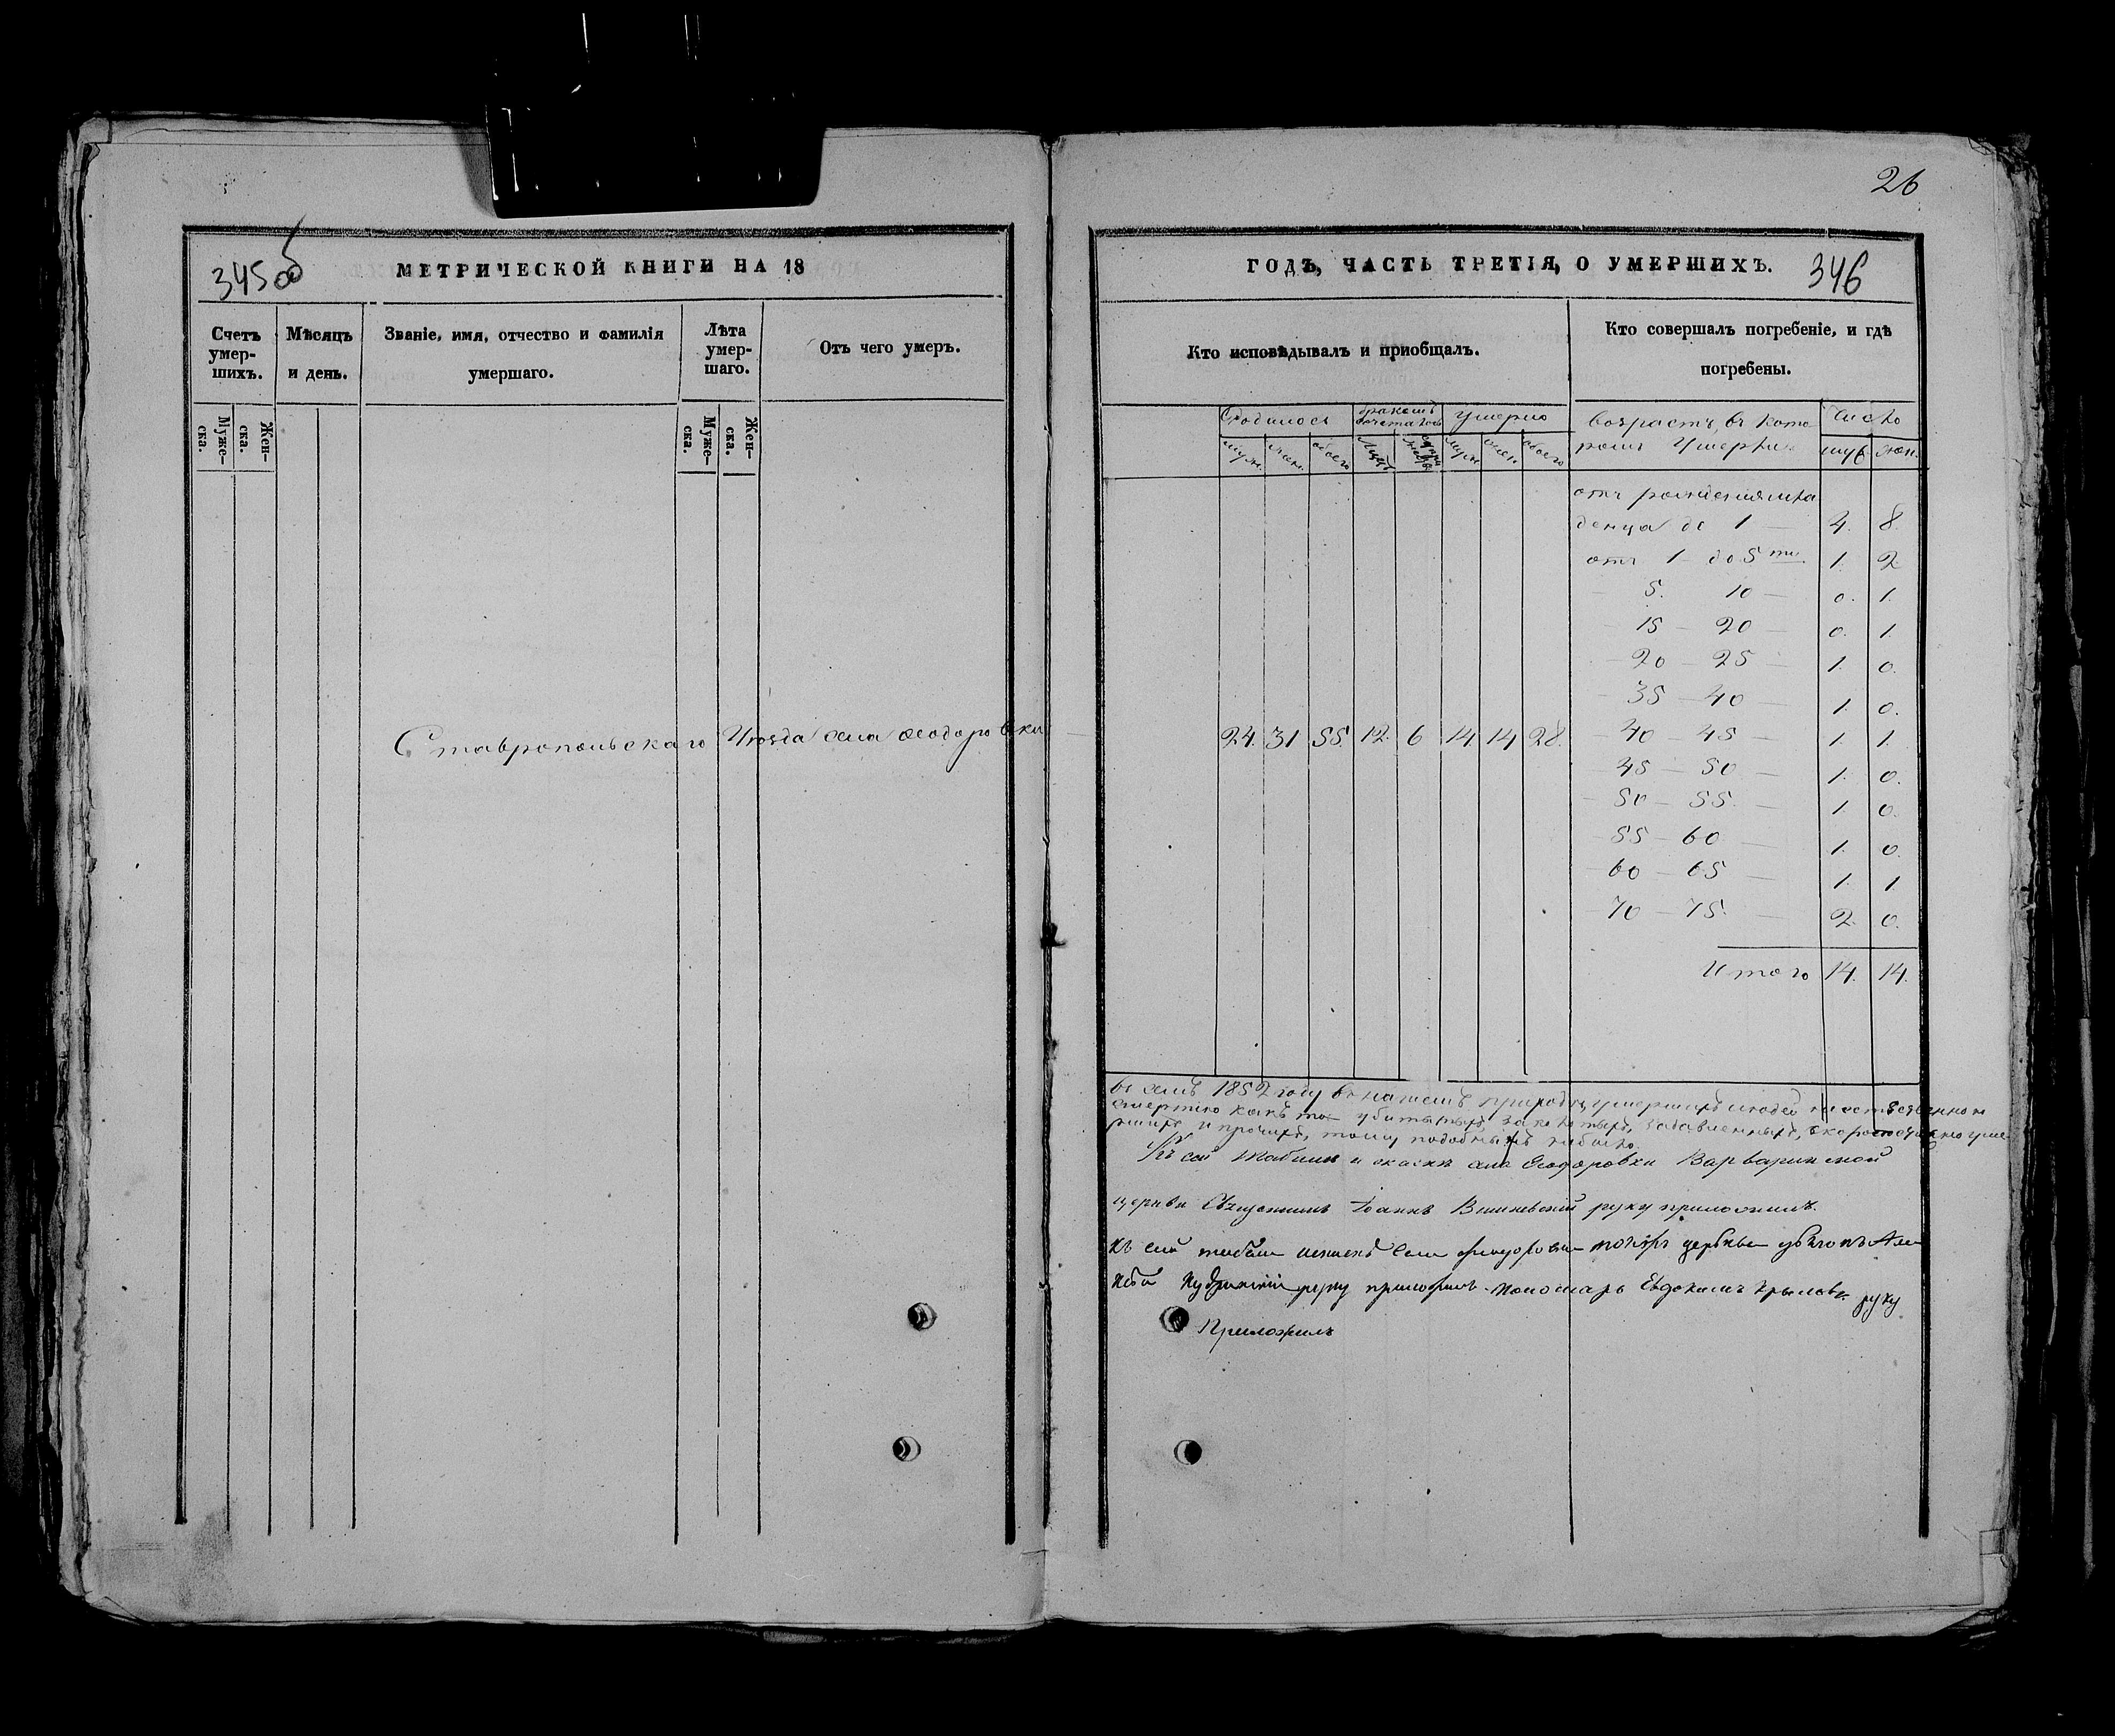 26
345 об
МЕТРИЧЕСКОЙ КНИГИ НА 18
ГОДЪ, ЧАСТЬ ТРЕТІЯ, О УМЕРШИХЪ.
346
Счетъ умер-шихъ.
Мѣсяцъ и день.
Званіе, имя, отчество и фамилія умершаго.
Лѣта умер-шаго.
Отъ чего умеръ.
Кто исповѣдывалъ и приобщалъ.
Кто совершалъ погребеніе, и гдѣ погребены.
Муже-ска.
Жен-ска.
Муже-ска.
Жен-ска.
Родилось
умерло
возрастъ, въ кото
число
муж.
жен.
обоего
муж.
жен.
обоего
ромъ умерли
муж.
жен.
отъ рожденія мла
денца до 1 — 4. 8.
отъ 1 до 5ти 1. 2
5. 10 — 0. 1.
15 — 20 — 0. 1.
20 — 25 — 1. 0.
35 — 40 — 1. 0.
Ставропольскаго Уѣзда села Ѳеодоровки
24. 31 55. 12. 6 14 14 28.
40 — 45 — 1. 1.
45 — 50 — 1. 0.
50 — 55. — 1. 0.
55 — 60 — 1. 0.
60 — 65 — 1. 1
70 — 75. — 2. 0.
Итого 14. 14.
въ семъ 1852 году въ нашемъ приходѣ умершихъ людей
смертію какъ то убитыхъ задавленныхъ, скоропостижно уме
ршихъ и прочихъ, тому подобныхъ небыло
Къ сей табели и села Ѳеодоровки Варваринской
церкви Священникъ Іоаннъ руку приложилъ.
Къ сей табели села тойжъ церкви Але
ксѣй руку приложилъ. Пономарь Евдокимъ Крыловъ руку
Приложилъ